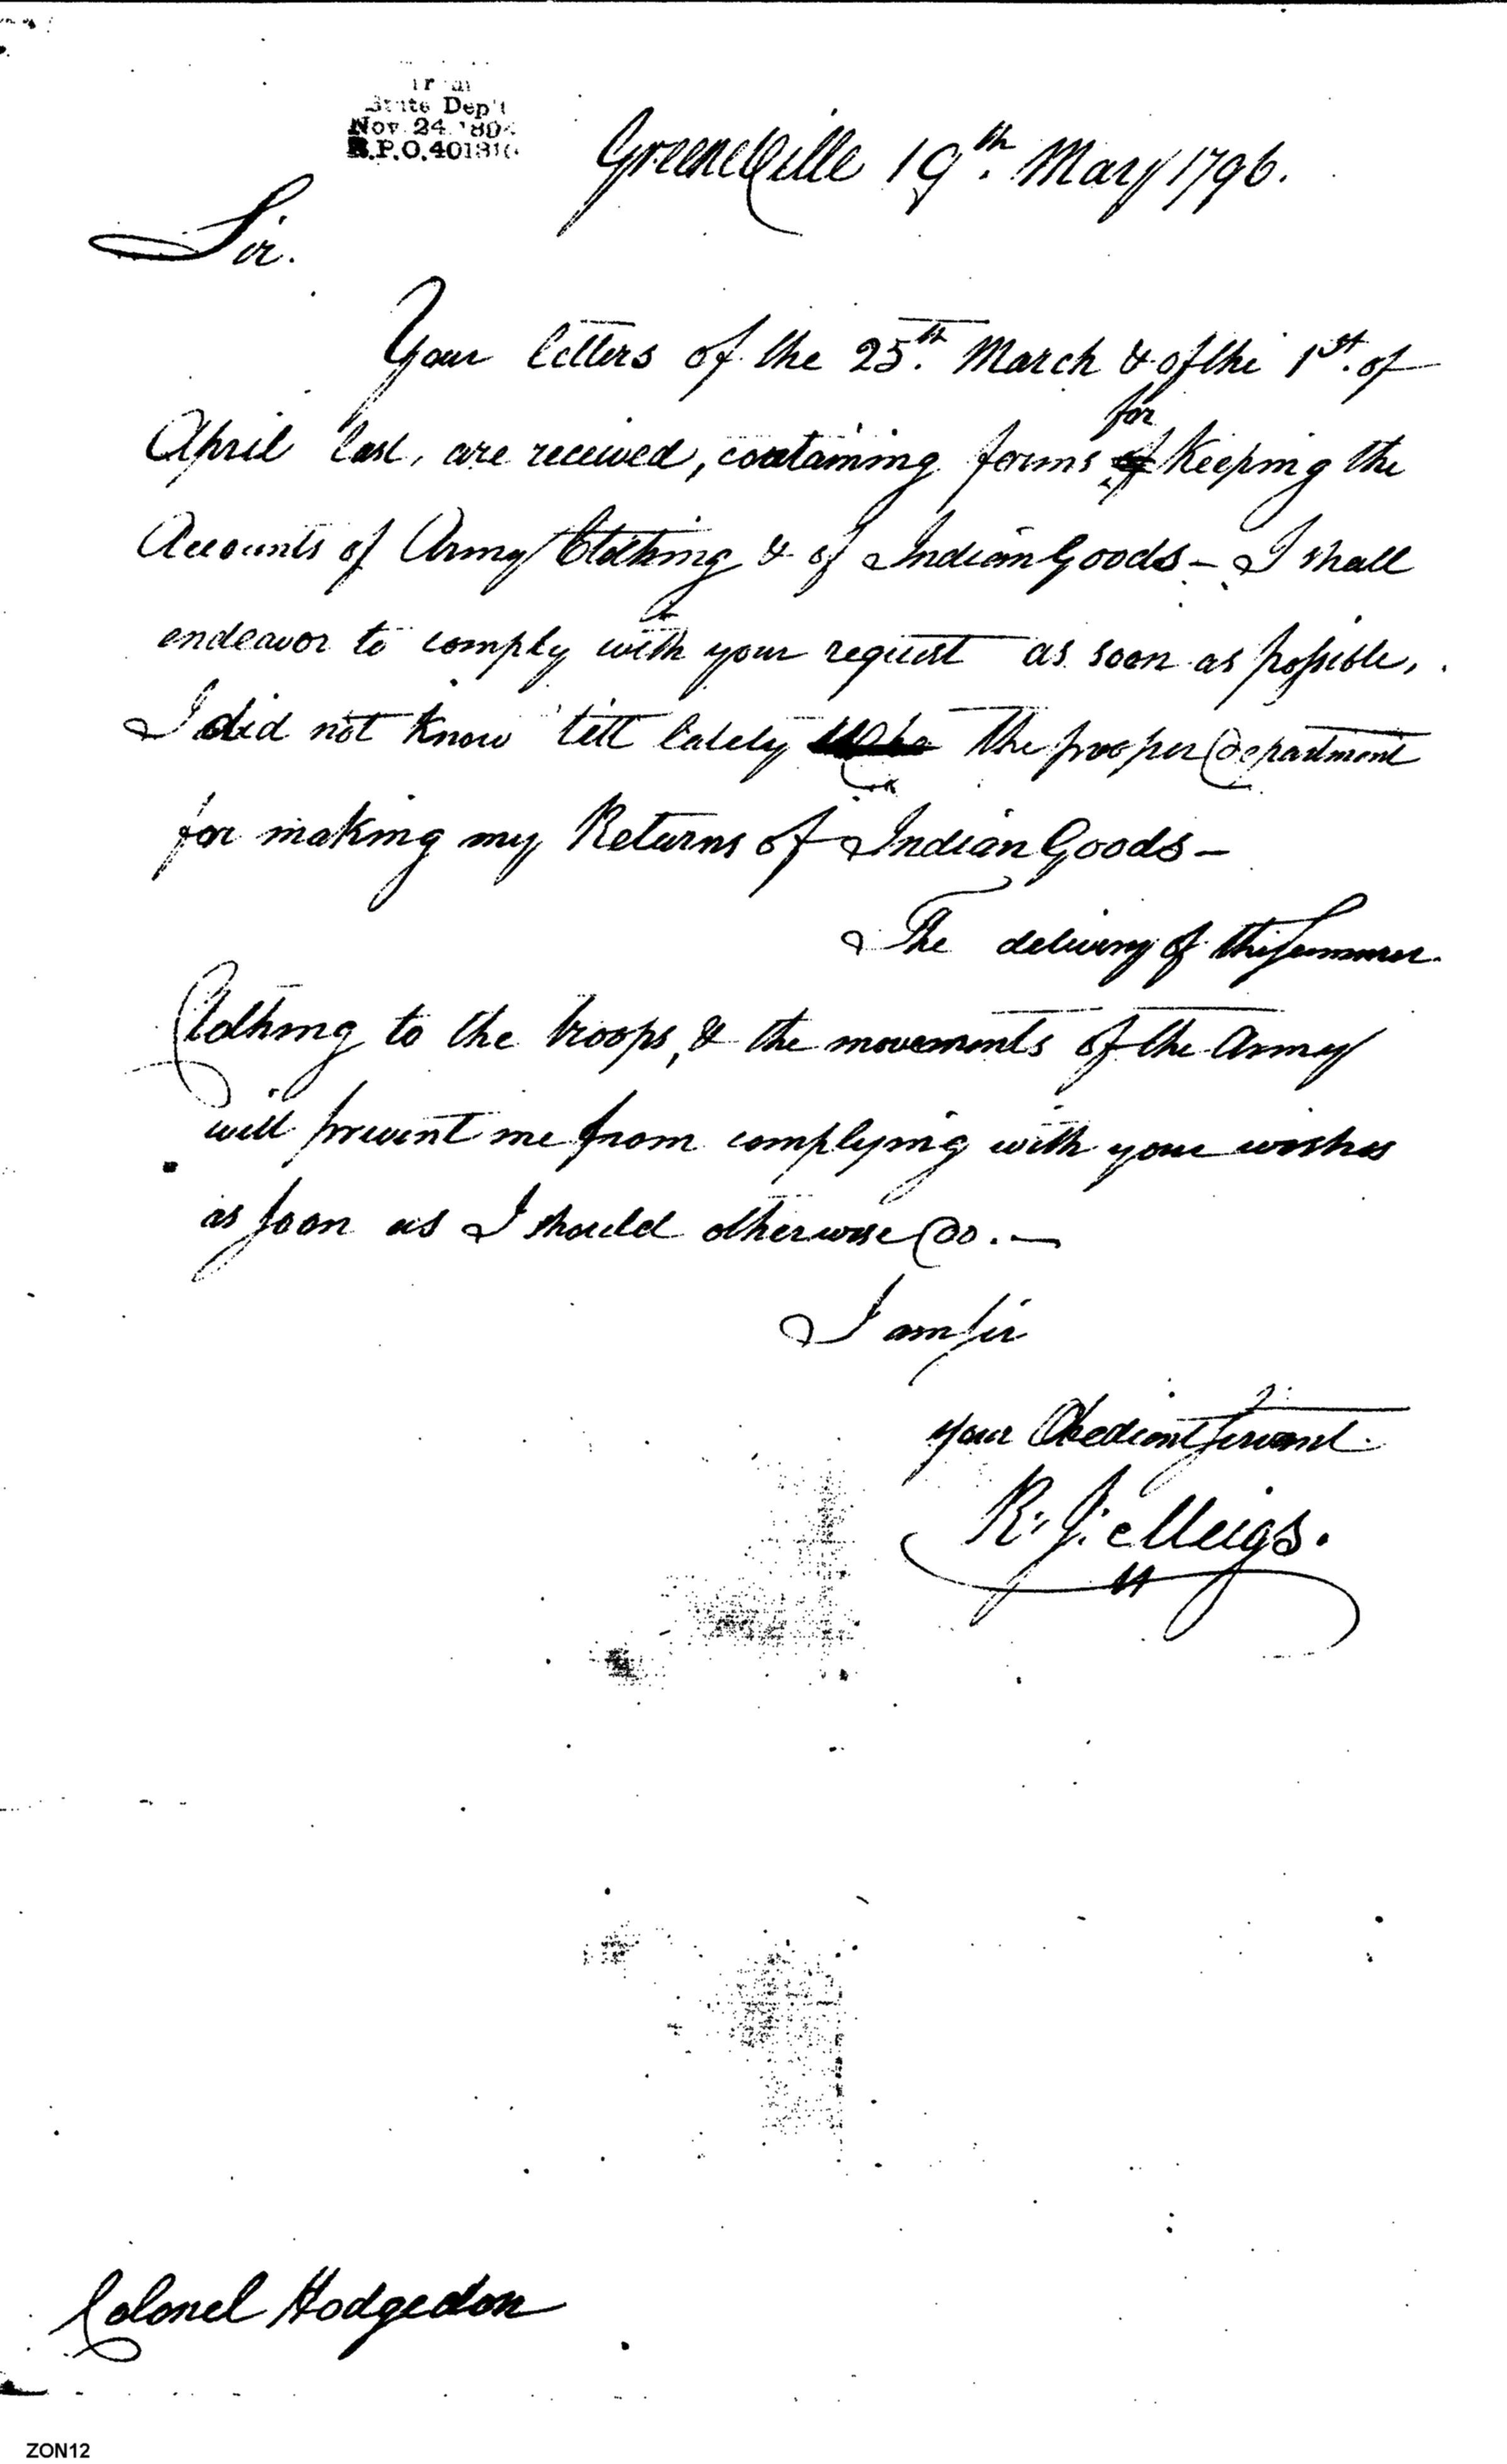 From
State Dep't
Nov. 24. 1894
R.P.O. 40131
Greeneville 19th. May 1796.
Sir.
Your letters of the 25th. March & of the 1st. of
for
April last, are received, containing forms of Keeping the
Accounts of Army Clothing & of Indian Goods – I shall
endeavor to comply with your request as soon as possible,
I did not know 'till lately the proper Department
for making my Returns of Indian Goods –
The delivery of the Summer
Clothing to the troops, & the movements of the Army
will prevent me from complying with your wishes
as soon as I should otherwise Do. —
I am Sir
your Obedient Servant.
R. J. Meigs.
Colonel Hodgedon
ZON12